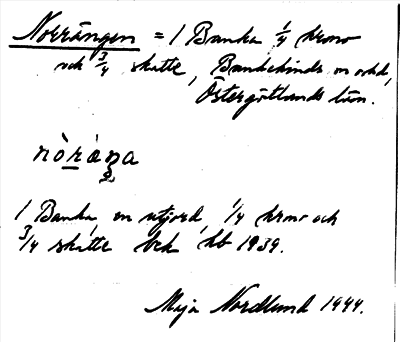 Norrängen = 1 Banka 1/4 krono
och 3/4 skatte, Bankekinds sn och hd,
Östergötlands län.
nòràŋa
1 Banka, en utjord, 1/4 krono och
3/4 skatte bek hb 1939.
Maja Nordlund 1944.